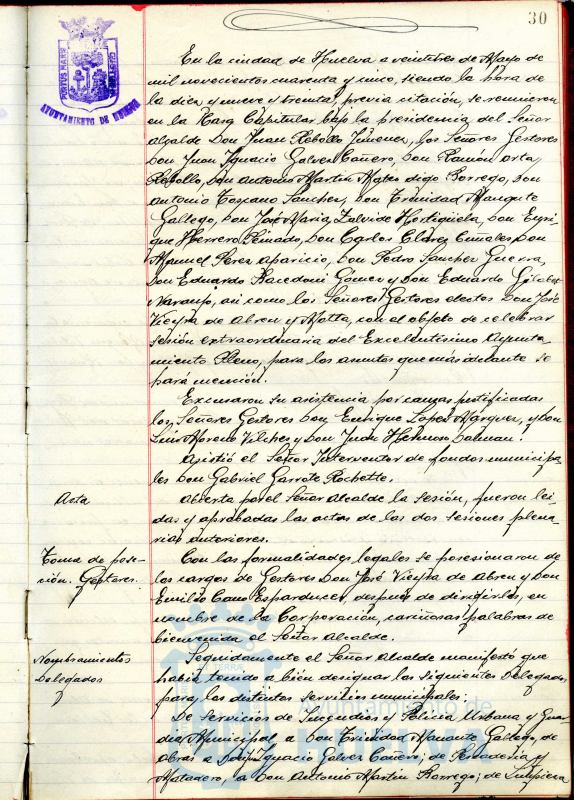 30
PORTUS MARIS
AYUNTAMIENTO DE HUELVA
En la ciudad de Huelva a veintitres de Mayo de
mil novecientos cuarenta y cinco, siendo la hora de
las diez y nueve y treinta, previa citación, se reunieron
en la Casa Capitular bajo la presidencia del Señor
Alcalde Don Juan Rebollo Jimenez, los Señores Gestores
Don Juan Ignacio Galvez Cañero, Don Ramón
Rebollo, Don Antonio Martin Mateo digo Borrego, Don
Antonio Toscano Sanchez, Don Trinidad
Gallego, Don José Maria Zalvide Hortigüela, Don Enri-
que Herrero Peinado, Don Carlos Don
Manuel Perez Aparicio, Don Pedro Sanchez Guerra,
Don Eduardo Racedoni Gómez y Don Eduardo Gilabert
Naranjo, asi como los Señores Gestores electos Don José
Vieyra de Abreu y Motta, con el objeto de celebrar
sesión extraordinaria del Excelentísimo Ayunta-
miento Pleno, para los asuntos que más adelante se
hará mención.
Excusaron su asistencia por causas justificadas
los Señores Gestores Don Enrique Lopez Marquez, y Don
Luis Moreno Vilches y Don Juan
Asistió el Señor Interventor de fondos municipa-
les Don Gabriel Garrote Rochette.
Acta
Abierta por el Señor Alcalde la Sesión, fueron lei-
das y aprobadas las actas de las dos sesiones plena-
rias anteriores.
Toma de pose-
ción. Gestores.
Con las formalidades legales se posesionaron de
los cargos de Gestores Don José Vieyra de Abreu y Don
Emilio Cano Esparducer, despues de dirigirles, en
nombre de la Corporación, cariñosas palabras de
bienvenida el Señor Alcalde.
Nombramientos
Delegados
Seguidamente el Señor Alcalde manifestó que
habia tenido a bien designar los siguientes Delegados
para los distintos servicios municipales:
De Servicios de Incendios y Policia Urbana y Guar-
dia Municipal, a Don Trinidad Gallego, de
Obras a Don Ignacio Galvez Cañero; de y
Matadero, a Don Antonio Martin Borrego; de Limpieza
Ayuntamiento de
HUELVA